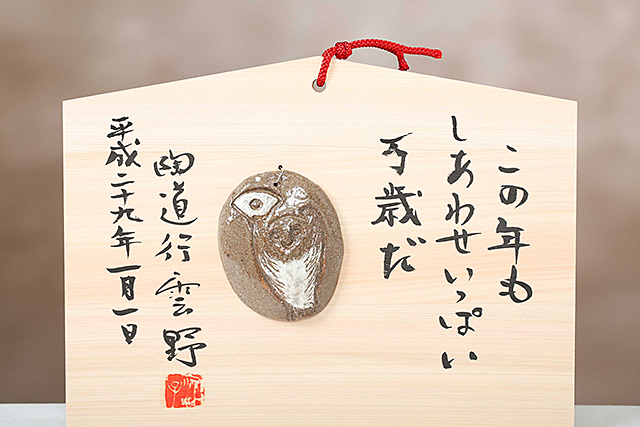 この年も
しあわせいっぱい
万歳だ
陶道行雲野
平成二十九年一月一日